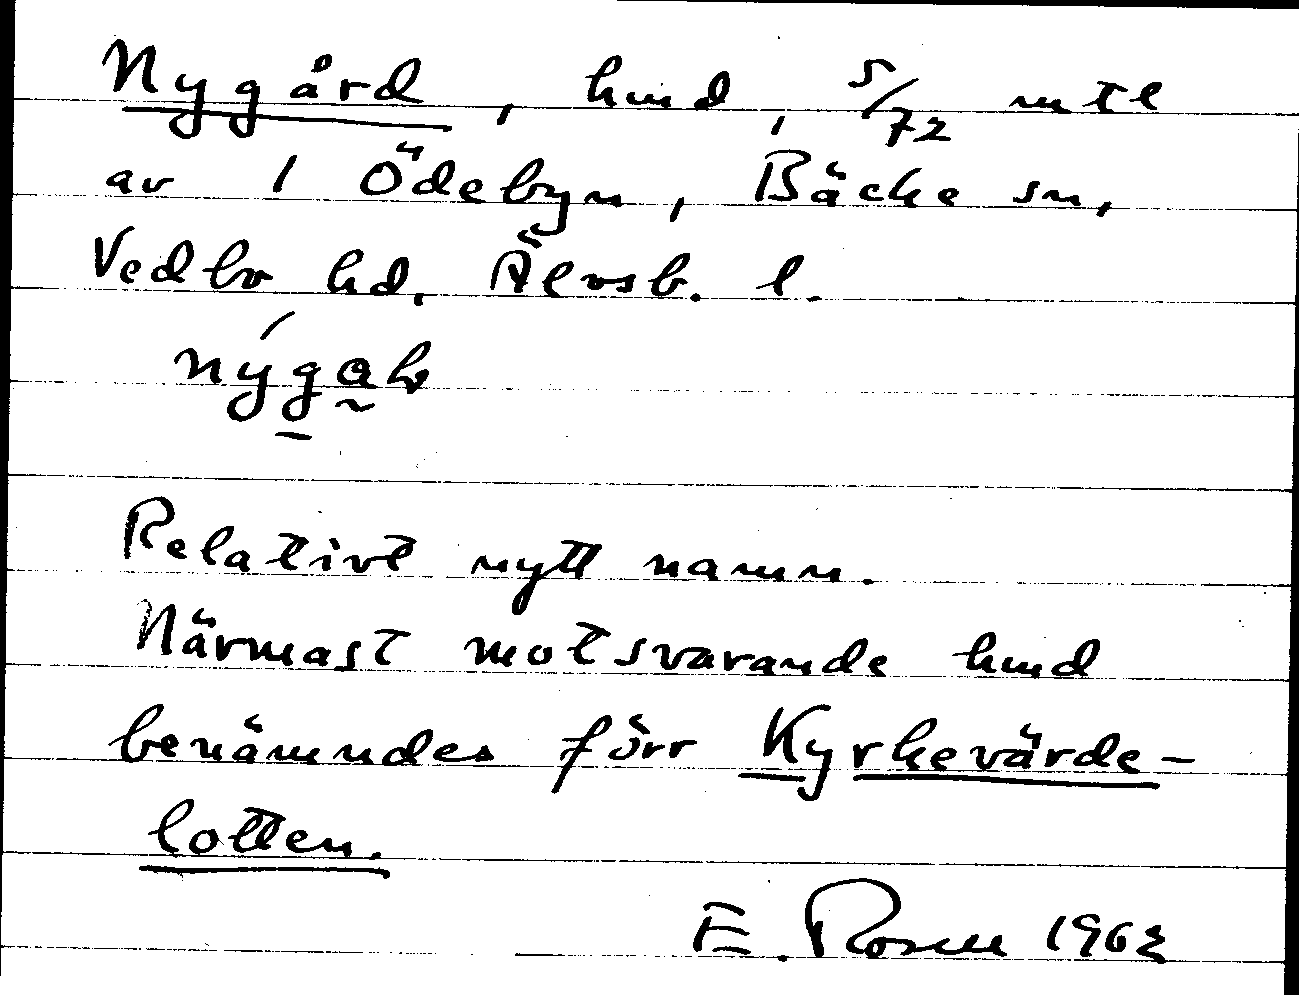 Nygård, hmd, 5/72 mtl
av 1 Ödebyn, Bäcke sn,
Vedbo hd, Älvsb. l.
Relativt nytt namn.
Närmast motsvarande hmd
benämndes förr Kyrkevärde-
lotten.
E. Rosen 1962